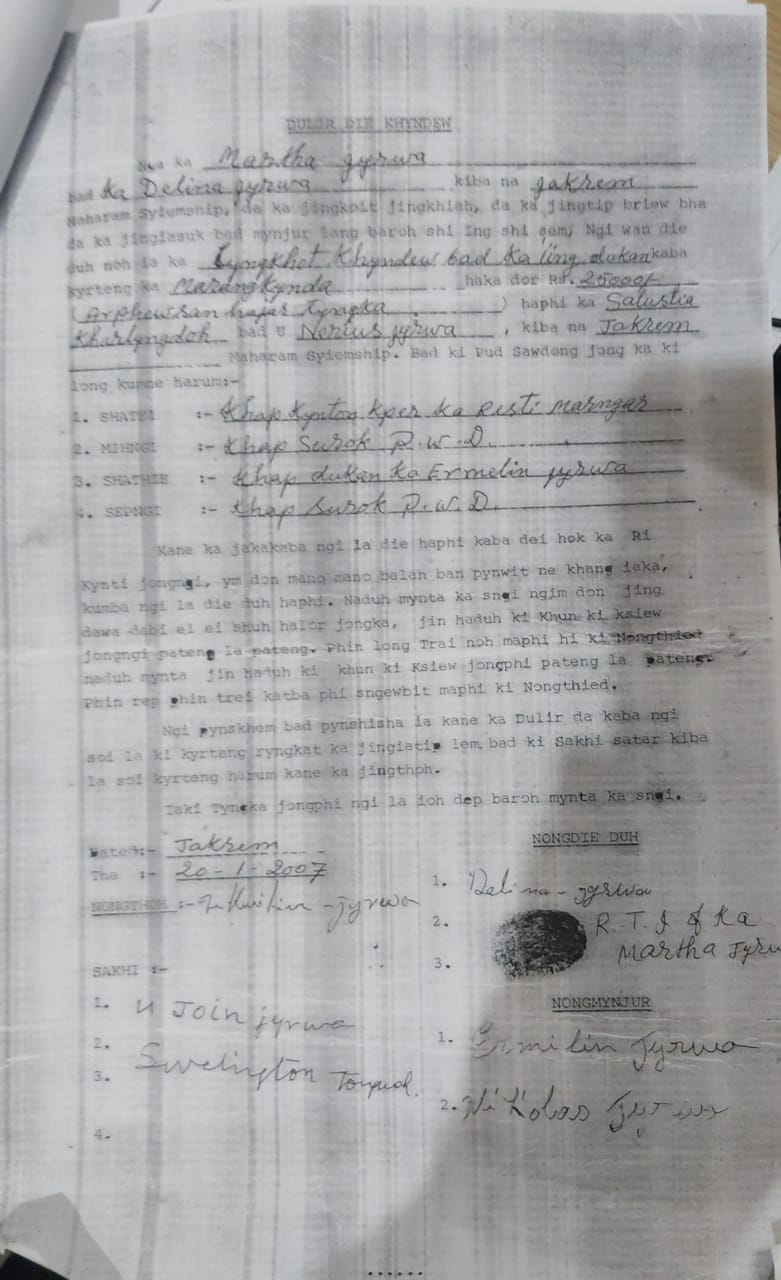 DULIR DIE KHYNDEW
Nga ka Martha Jyrwa
bad Ka Delina Jyrwa kiba na Jakrem
Maharam Syiemship, da ka jingkoit jingkhiah, da ka jingtip briew bha
da ka jingiasuk bad mynjur lang baroh shi ing shi sem, Ngi wan die
duh noh ia ka Lyngkhot Khyndew bad Ka iing dukan kaba
kyrteng ka Marang Kynda haka dor Rs. 25000/-
(Arphew san hajar tyngka) haphi ka Salustia
Kharlyngdoh bad u Nerius Jyrwa, kiba na Jakrem
Maharam Syiemship. Bad ki Pud Sawdong jong ka ki
long kumne harum:-
1. SHATEI :- Khap Kynton Kper ka Risti Marngar
2. MIHNGI :- Khap Surok P.W.D.
3. SHATHIE :- Khap dukan Ka Ermelin Jyrwa
4. SEPNGI :- Khap Surok P.W.D.
Kane ka jakakaba ngi la die haphi kaba dei hok ka Ri
Kynti jongngi, ym don mano mano balah ban pynwit ne khang iaka,
kumba ngi la die duh haphi. Naduh mynta ka sngi ngim don jing
dawa dabi ei ei shuh halor jongka, jin haduh ki Khun ki ksiew
jongngi pateng la pateng. Phin long Trai noh maphi hi ki Nongthied
naduh mynta jin haduh ki khun ki Ksiew jongphi pateng la pateng.
Phin rep phin trei katba phi sngewbit maphi ki Nongthied.
Ngi pynskhem bad pynshisha ia kane ka Dulir da kaba ngi
soi la ki kyrteng ryngkat ka jingiatip lem bad ki Sakhi satar kiba
la soi kyrteng harum kane ka jingthph.
Iaki Tyngka jongphi ngi la ioh dep baroh mynta ka sngi.
Dated:- Jakrem
The :- 20-1-2007
NONGTHOH :- Jyrwa
NONGDIE DUH
1. Delina - Jyrwa
2. R.T.I of Ka
Martha Jyrw
3.
SAKHI :-
1. U Join Jyrwa
2. Swelington
3.
4.
NONGMYNJUR
1. Ermilin Jyrwa
2. Nikolas Jyrwa